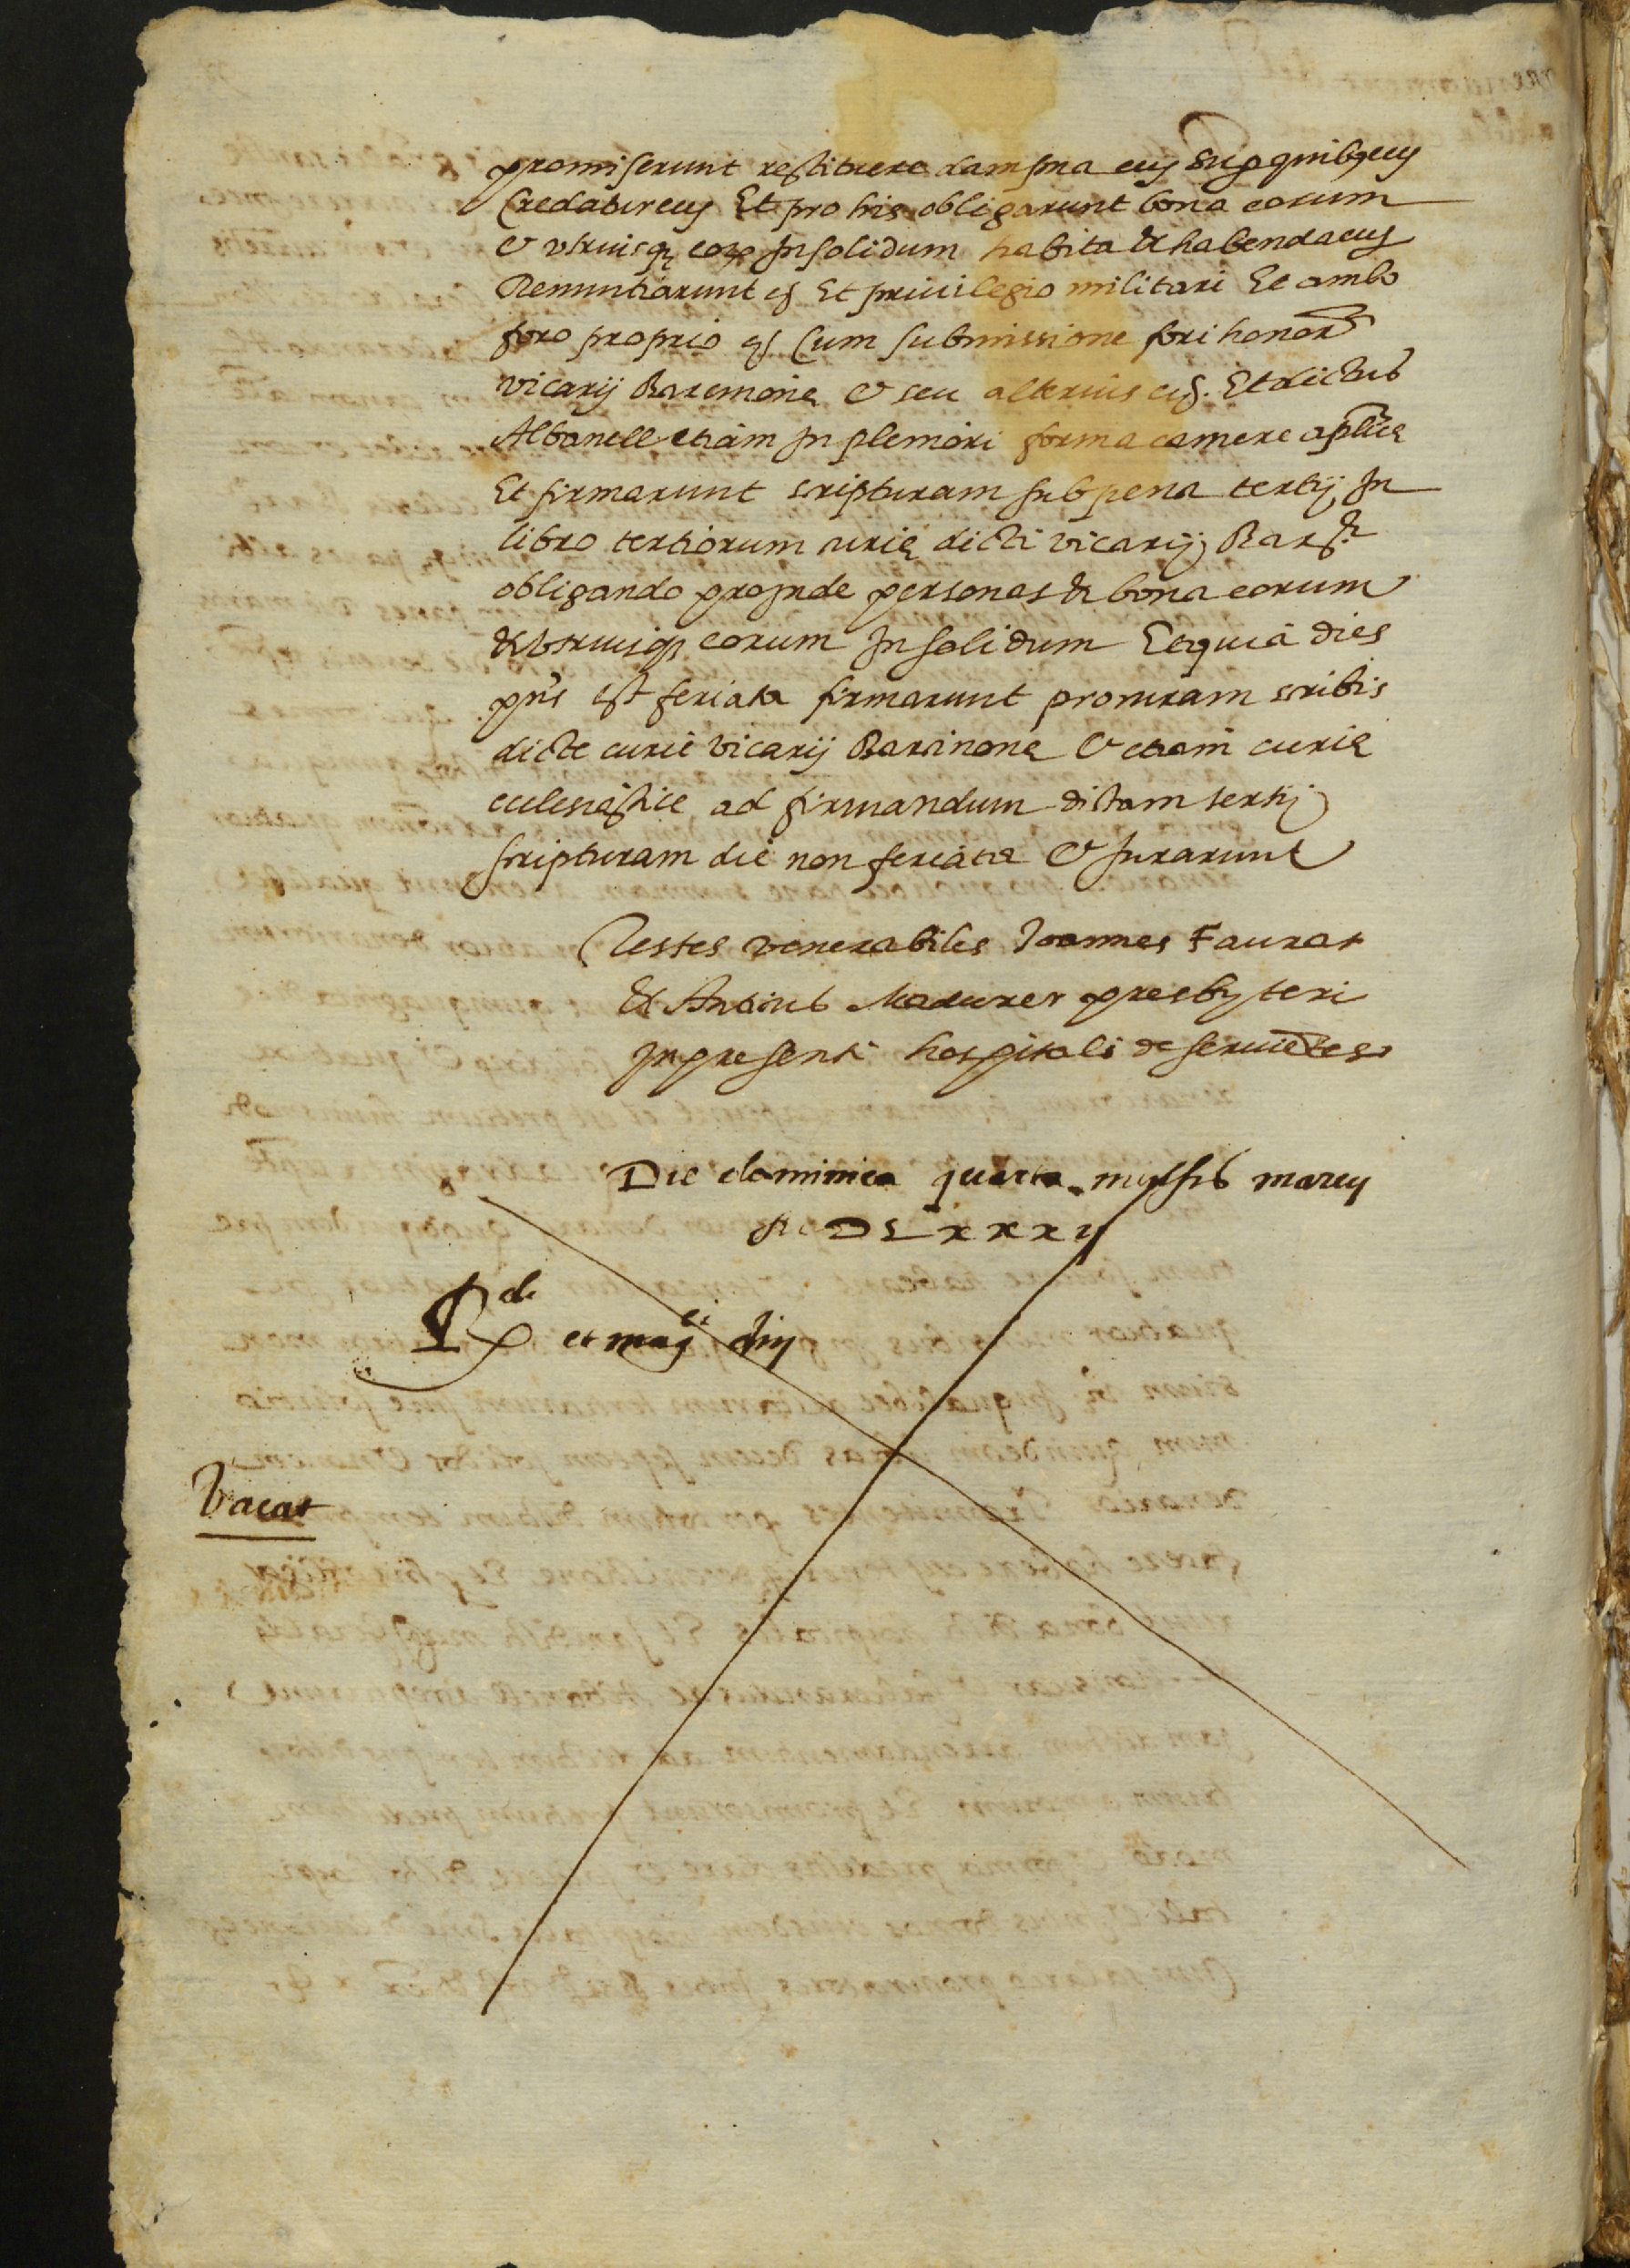 promiserunt restituere dampna etc̃ Sup quibꝰ etc̃
Credatur etc̃ Et pro his obligarunt bona eorum
& vtriusqꝫ eorꝫ In solidum habita & habenda etc̃
Renuntiarunt etc̃ Et priuilegio militari Et ambo
foro proprio etc̃ Cum submissione fori honor̃
vicarij Barcinonę & seu alterius etc̃. Et dictus
Albanell etiam In pleniori forma camere aplicę
Et firmarunt scripturam sub pena tertij In
libro tertiorum curię dicti vicarij Bar
obligando proinde personas & bona eorum
& vtriusqꝫ eorum In solidum Et quia dies
pñs est feriata firmarunt procuram scribis
dicte curie vicarij Barcinonę & etiam curię
ecclesiastice ad firmandum dictam tertij
scripturam die non feriata & Jurarunt
Testes venerabiles Joannes Faurat
& Antoniꝰ Madurer presbyteri
In presenti hospitali deseruiẽtes
Die dominica quarta mensis marcij
MDLxxxij
Rdi et magci dñj
Vacat